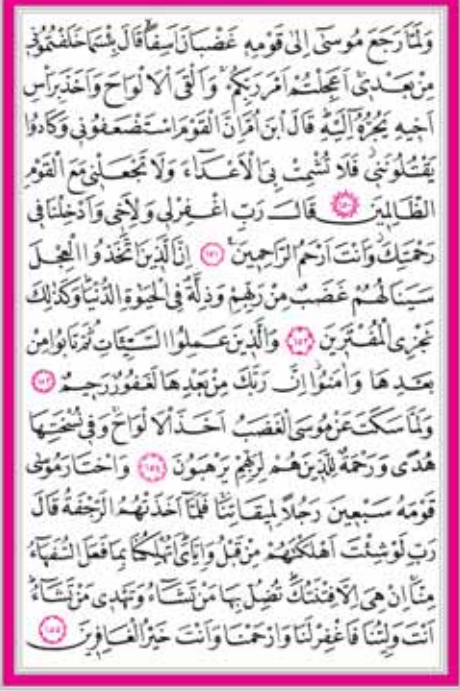 وَلَمَّا رَجَعَ مُوسٰٓى اِلٰى قَوْمِه۪ غَضْبَانَ اَسِفًاۙ قَالَ بِئْسَمَا خَلَفْتُمُون۪ي
مِنْ بَعْد۪يۚ اَعَجِلْتُمْ اَمْرَ رَبِّكُمْۚ وَاَلْقَى الْاَلْوَاحَ وَاَخَذَ بِرَأْسِ
اَخ۪يهِ يَجُرُّهُٓ اِلَيْهِۜ قَالَ ابْنَ اُمَّ اِنَّ الْقَوْمَ اسْتَضْعَفُون۪ي وَكَادُوا
يَقْتُلُونَن۪يۘ فَلَا تُشْمِتْ بِيَ الْاَعْدَٓاءَ وَلَا تَجْعَلْن۪ي مَعَ الْقَوْمِ
الظَّالِم۪ينَ ﴿١٥٠﴾ قَالَ رَبِّ اغْفِرْ ل۪ي وَلِاَخ۪ي وَاَدْخِلْنَا ف۪ي
رَحْمَتِكَۘ وَاَنْتَ اَرْحَمُ الرَّاحِم۪ينَ۟ ﴿١٥١﴾ اِنَّ الَّذ۪ينَ اتَّخَذُوا الْعِجْلَ
سَيَنَالُهُمْ غَضَبٌ مِنْ رَبِّهِمْ وَذِلَّةٌ فِي الْحَيٰوةِ الدُّنْيَاۜ وَكَذٰلِكَ
نَجْزِي الْمُفْتَر۪ينَ ﴿١٥٢﴾ وَالَّذ۪ينَ عَمِلُوا السَّيِّـَٔاتِ ثُمَّ تَابُوا مِنْ
بَعْدِهَا وَاٰمَنُواۘ اِنَّ رَبَّكَ مِنْ بَعْدِهَا لَغَفُورٌ رَح۪يمٌ ﴿١٥٣﴾
وَلَمَّا سَكَتَ عَنْ مُوسَى الْغَضَبُ اَخَذَ الْاَلْوَاحَۚ وَف۪ي نُسْخَتِهَا
هُدًى وَرَحْمَةٌ لِلَّذ۪ينَ هُمْ لِرَبِّهِمْ يَرْهَبُونَ ﴿١٥٤﴾ وَاخْتَارَ مُوسٰى
قَوْمَهُ سَبْع۪ينَ رَجُلًا لِم۪يقَاتِنَاۚ فَلَمَّٓا اَخَذَتْهُمُ الرَّجْفَةُ قَالَ
رَبِّ لَوْ شِئْتَ اَهْلَكْتَهُمْ مِنْ قَبْلُ وَاِيَّايَۜ اَتُهْلِكُنَا بِمَا فَعَلَ السُّفَهَٓاءُ
مِنَّاۚ اِنْ هِيَ اِلَّا فِتْنَتُكَۜ تُضِلُّ بِهَا مَنْ تَشَٓاءُ وَتَهْد۪ي مَنْ تَشَٓاءُۜ
اَنْتَ وَلِيُّنَا فَاغْفِرْ لَنَا وَارْحَمْنَا وَاَنْتَ خَيْرُ الْغَافِر۪ينَ ﴿١٥٥﴾